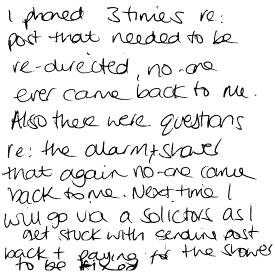 I phoned 3 times re:
post that needed to be
re-directed, no-one
ever came back to me.
Also there were questions
re: the alarm + shower
that again no-one came
back to me. Next time I
will go via a solicitors as I
get stuck with sending post
back + paying for the shower
to be fixed